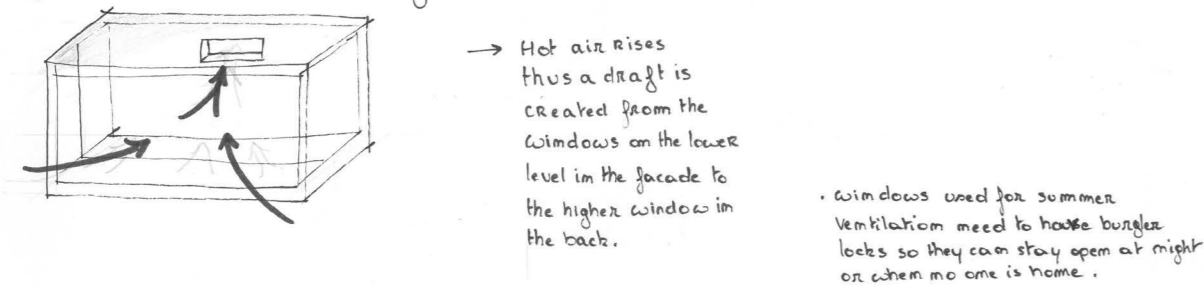 → Hot air rises
thus a draft is
created from the
windows on the lower
level in the facade to
the higher window in
the back.
. windows used for summer
ventilation need to have burgler
locks so they can stay open at night
or when no one is home.